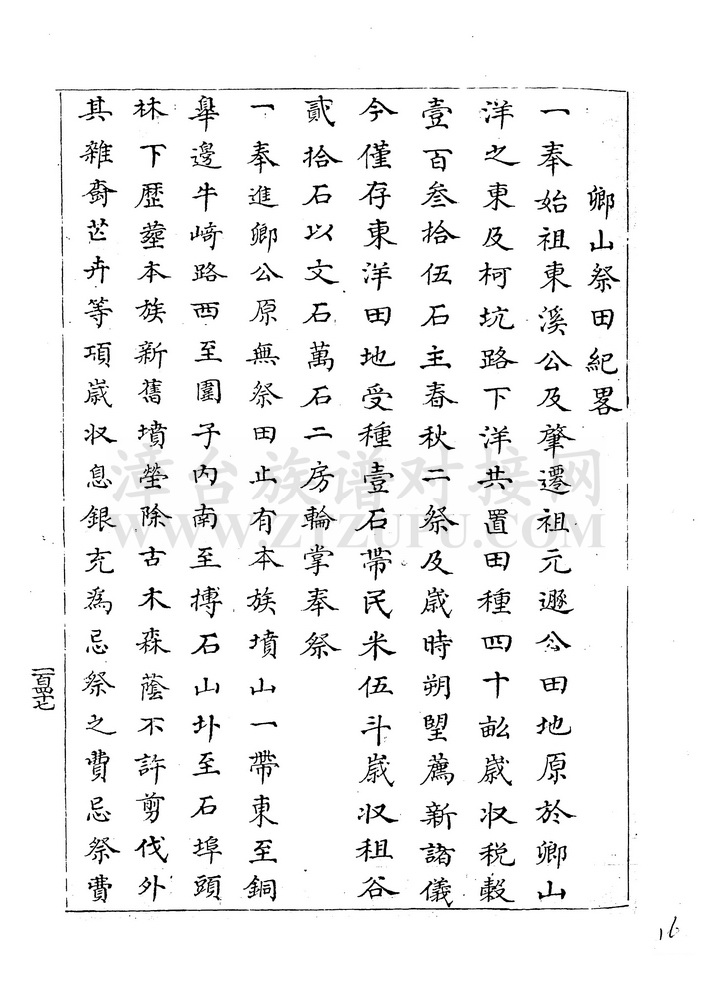 卿山祭田紀畧
一奉始祖東溪公及肇遷祖元遜公田地原於卿山
洋之東及柯坑路下洋共置田種四十畝歲收稅穀
壹百叁拾伍石主春秋二祭及歲時朔朢薦新諸儀
今僅存東洋田地受種壹石帶民米伍斗歲收租谷
貳拾石以文石萬石二房輪掌奉祭
一奉進卿公原無祭田止有本族墳山一帶東至銅
皐邊牛崎路西至圍子內南至摶石山圤至石埠頭
林下歷葬本族新舊墳塋除古木森蔭不許剪伐外
其雜畬芒卉等項歲收息銀充為忌祭之費忌祭費
一百四十七
16
漳台族谱对接网
WWW.ZTZUPU.COM